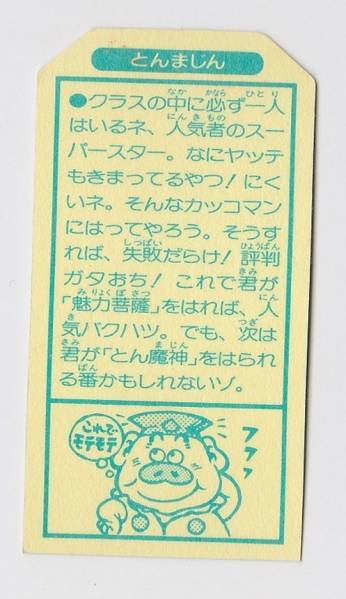 とんまじん
●クラスの中に必ず一人
はいるネ、人気者のスー
パースター。なにヤッテ
もきまってるやつ！にく
いネ。そんなカッコマン
にはってやろう。そうす
れば、失敗だらけ！評判
ガタおち！これで君が
「魅力菩薩」をはれば、人
気バクハツ。でも、次は
君が「とん魔神」をはられ
る番かもしれないゾ。
これで
モテモテ
フフフ